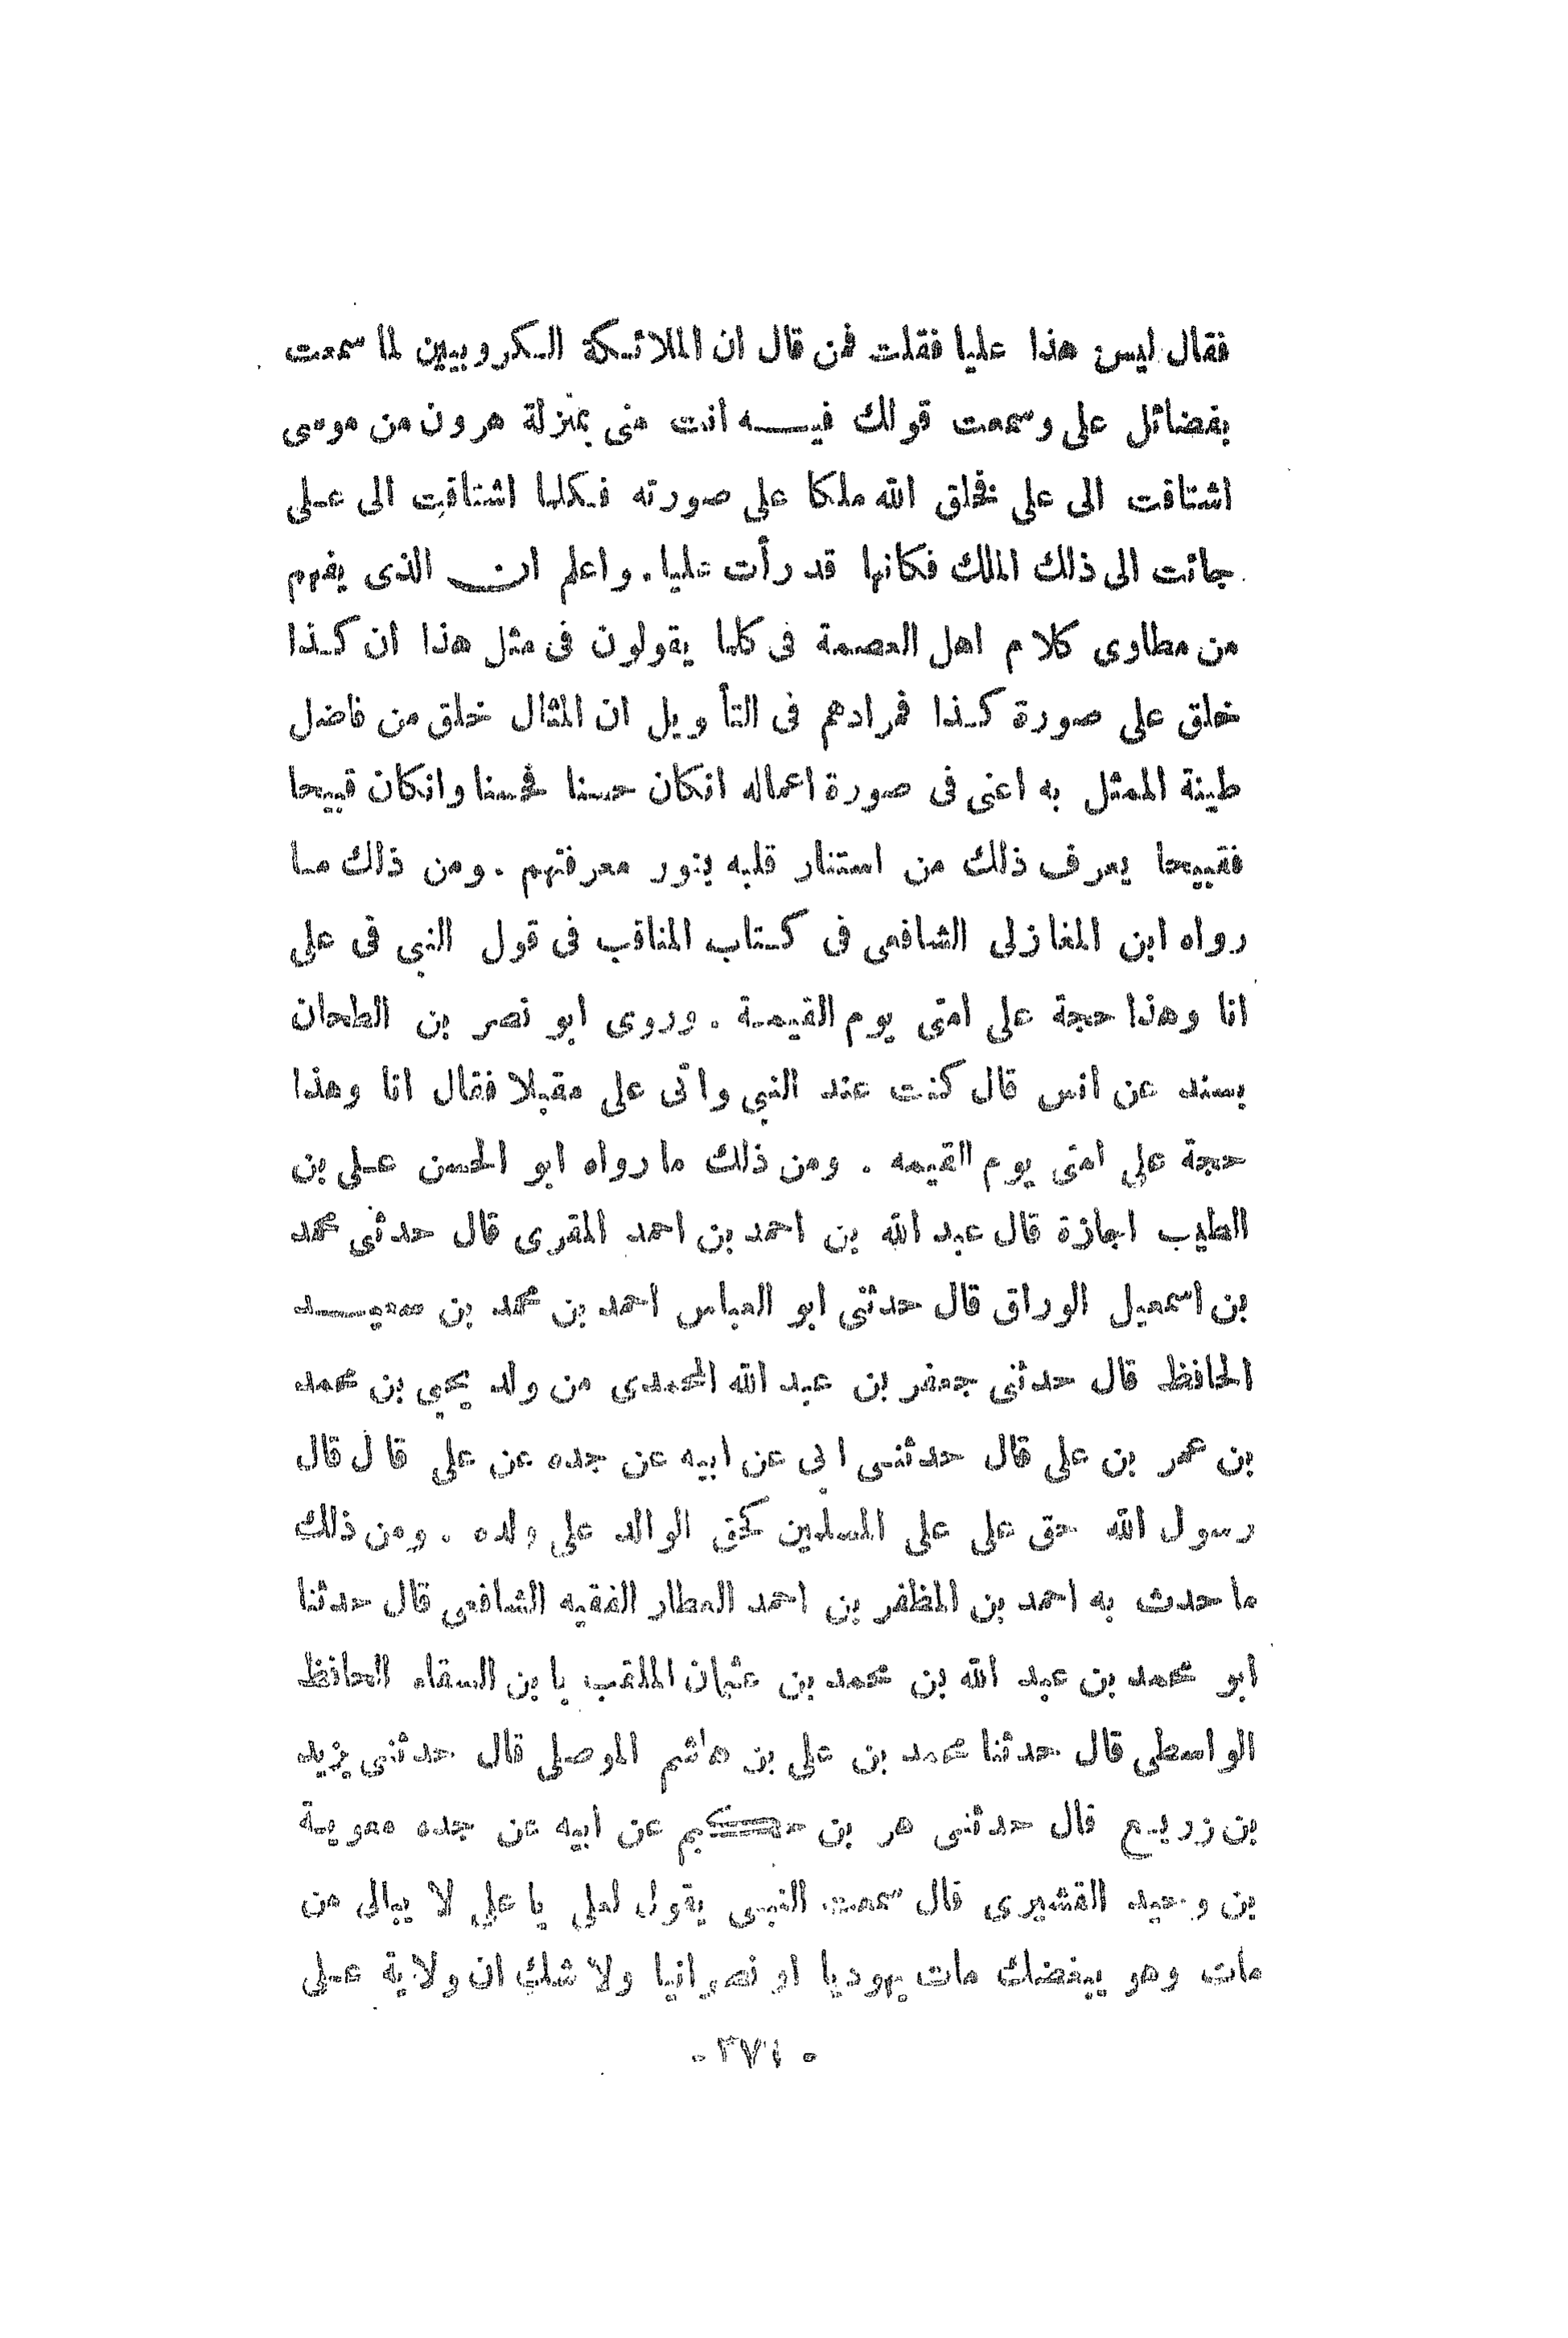 فقال ليس هذا عليا فقلت فمن قال ان الملائكة الكروبيين لما سمعت
بفضائل على وسمعت قولك فيه انت منى بمنزلة هرون من موسى
اشتاقت الى على فخلق الله ملكا على صورته فكلما اشتاقت الى على
جائت الى ذلك الملك فكانها قد رأت عليا . واعلم ان الذى يفهم
من مطاوى كلام اهل العصمة فى كلما يقولون فى مثل هذا ان كذا
خلق على صورة كذا فمرادهم فى التأويل ان المثال خلق من فاضل
طينة الممثل به اعنى فى صورة اعماله انكان حسنا فحسنا وانكان قبيحا
فقبيحا يعرف ذلك من استنار قلبه بنور معرفتهم . ومن ذلك ما
رواه ابن المغازلى الشافعى فى كتاب المناقب فى قول النبي فى على
انا وهذا حجة على امتى يوم القيمة . وروى ابو نصر بن الطحان
بسنده عن انس قال كنت عند النبي واتى على مقبلا فقال انا وهذا
حجة على امتى يوم القيمه . ومن ذلك ما رواه ابو الحسن على بن
الطيب اجازة قال عبد الله بن احمد بن احمد المقرى قال حدثنى محمد
بن اسمعيل الوراق قال حدثنى ابو العباس احمد بن محمد بن سعيد
الحافظ قال حدثنى جعفر بن عبد الله المحمدى من ولد يحيي بن محمد
بن عمر بن على قال حدثنى ابى عن ابيه عن جده عن على قال قال
رسول الله حق على على المسلمين كحق الوالد على ولده . ومن ذلك
ما حدث به احمد بن المظفر بن احمد العطار الفقيه الشافعى قال حدثنا
ابو محمد بن عبد الله بن محمد بن عثمان الملقب بابن السقاء الحافظ
الواسطى قال حدثنا محمد بن على بن هاشم الموصلى قال حدثنى يزيد
بن زريع قال حدثنى هر بن حكيم عن ابيه عن جده معوية
بن وحيد القشيرى قال سمعت النبى يقول لعلى يا علي لا يبالى من
مات وهو يبغضك مات يهوديا او نصرانيا ولا شك ان ولاية على
- ٢٧٤ -